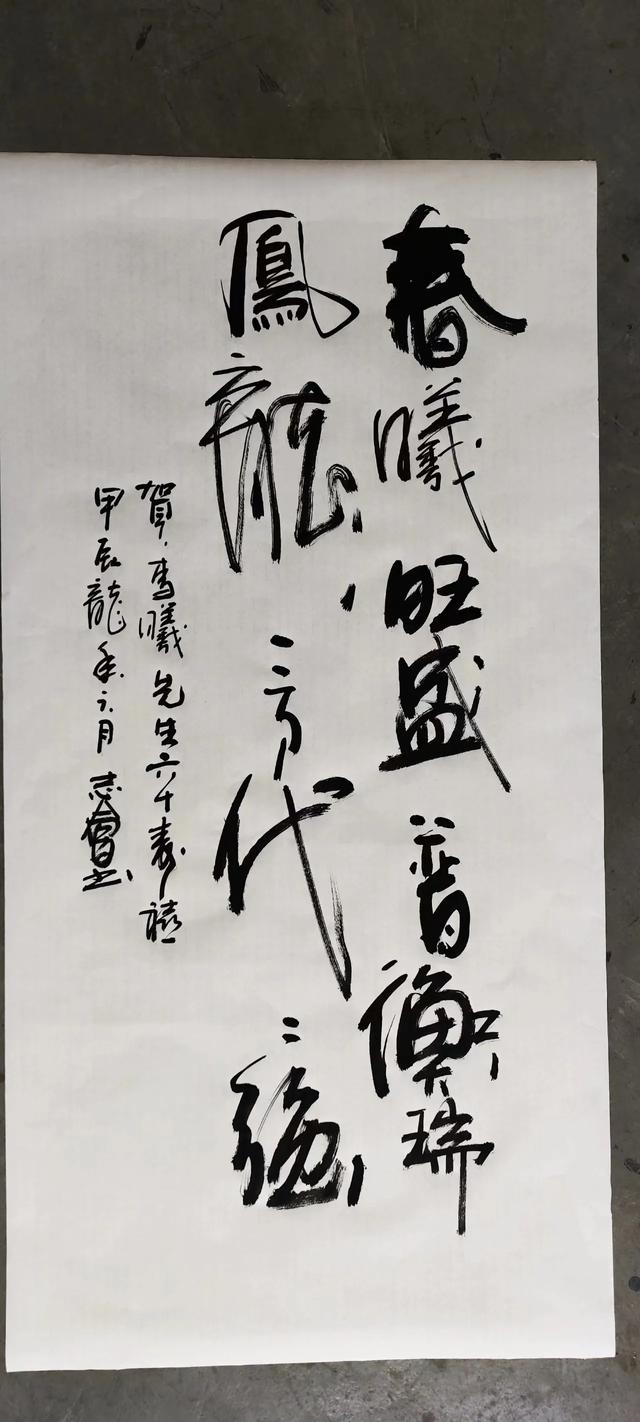 春曦旺盛普衡瑞
鳳龍三代強
賀春曦先生六十春禧
甲辰龍年六月志